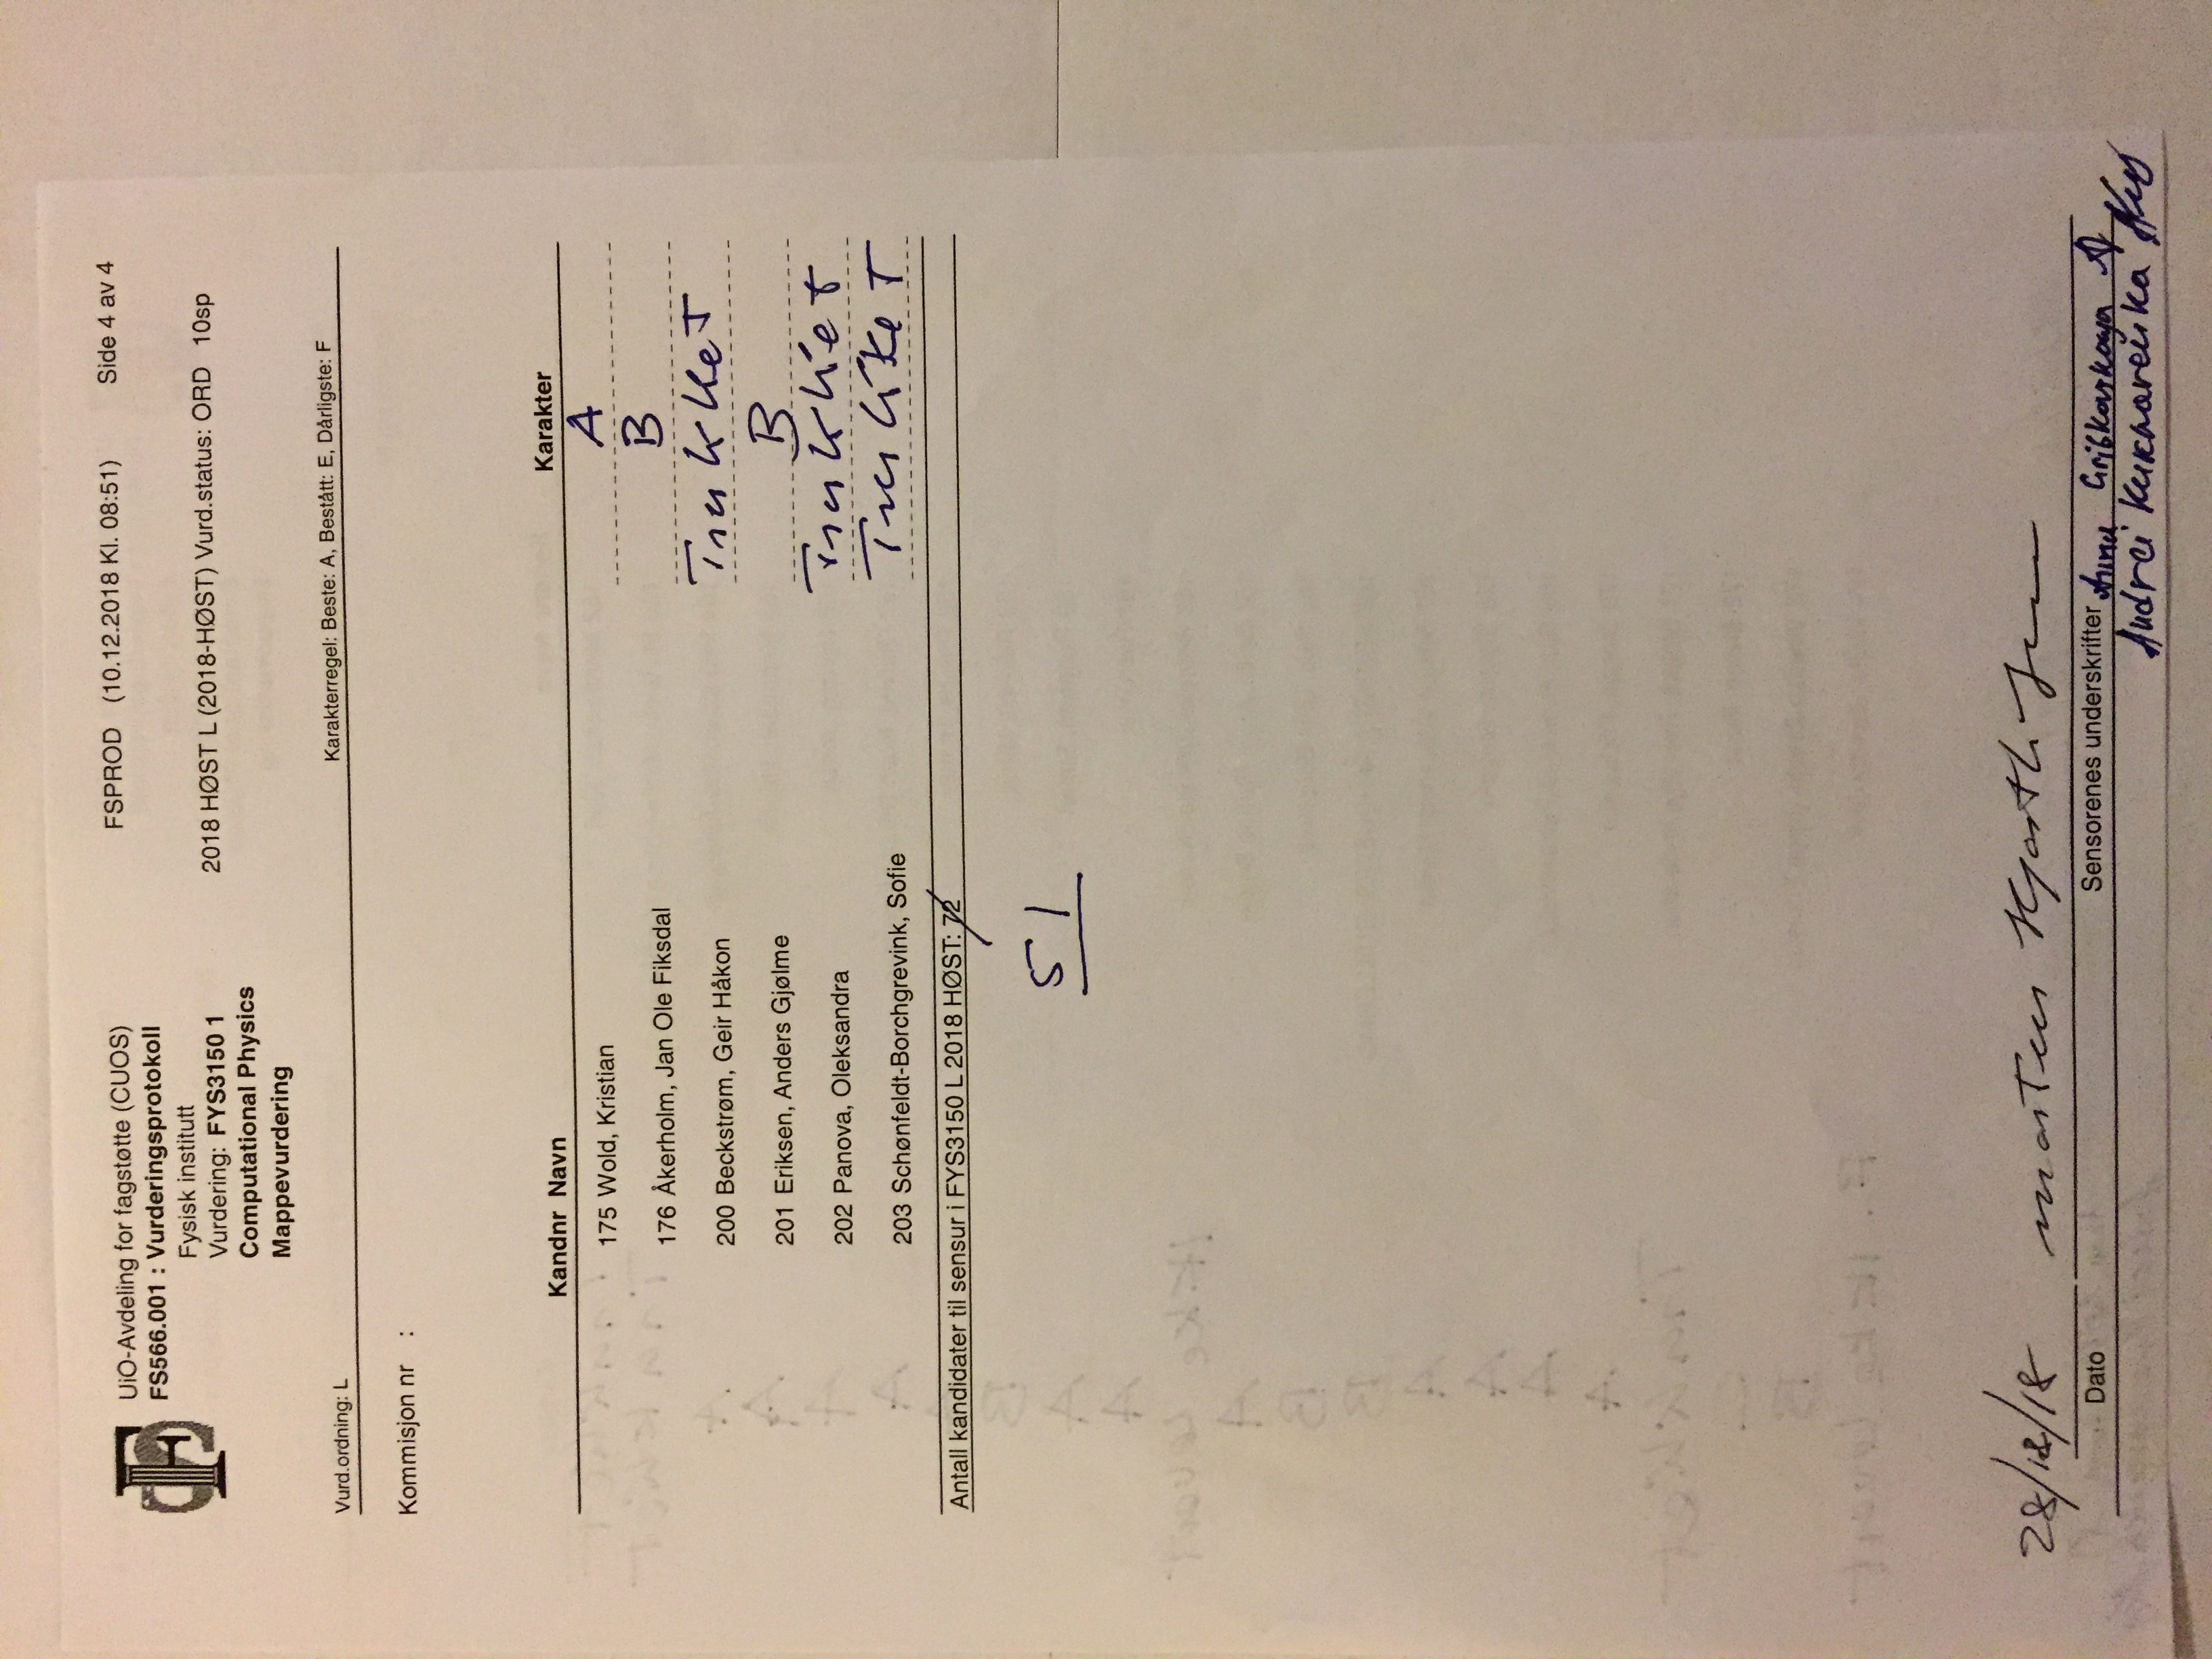 UiO-Avdeling for fagstøtte (CUOS) FSPROD (10.12.2018 Kl. 08:51) Side 4 av 4
FS566.001 : Vurderingsprotokoll
Fysisk institutt
Vurdering: FYS3150 1 2018 HØST L (2018-HØST) Vurd.status: ORD 10sp
Computational Physics
Mappevurdering
Vurd.ordning: L Karakterregel: Beste: A, Bestått: E, Dårligste: F
Kommisjon nr :
Kandnr Navn Karakter
175 Wold, Kristian A
176 Åkerholm, Jan Ole Fiksdal B
200 Beckstrøm, Geir Håkon Trukket
201 Eriksen, Anders Gjølme B
202 Panova, Oleksandra Trukket
203 Schønfeldt-Borchgrevink, Sofie Trukket
Antall kandidater til sensur i FYS3150 L 2018 HØST: 72
51
28/12/18 Morten Hjorth-Jensen
Dato Sensorenes underskrifter Anna Gribkovskaya
Andrei Kukharenka